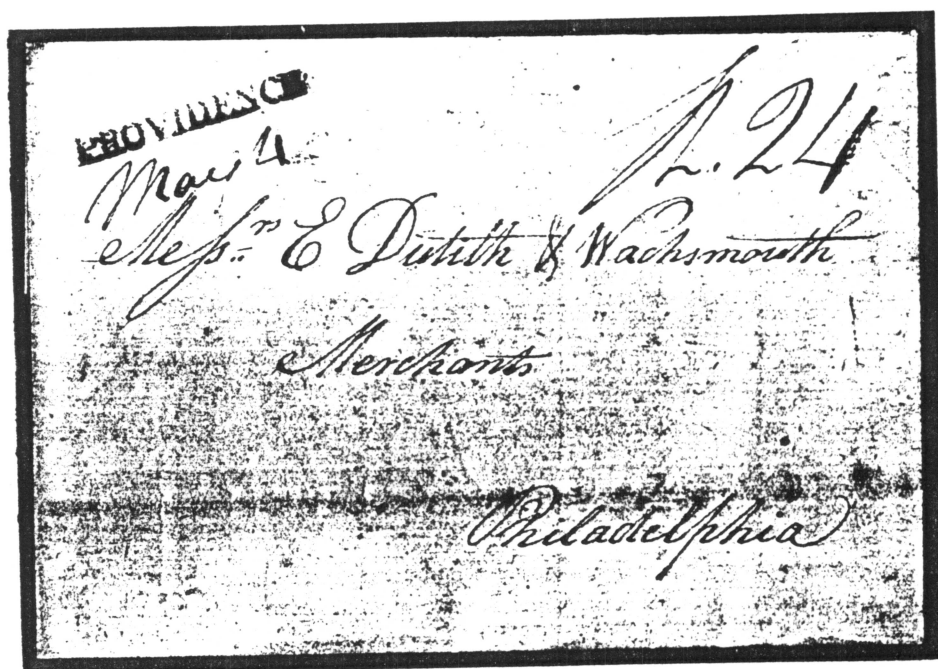 PROVIDENCE
May 4
p. 24
Messrs E Dutilh & Wachsmouth
Merchants
Philadelphia